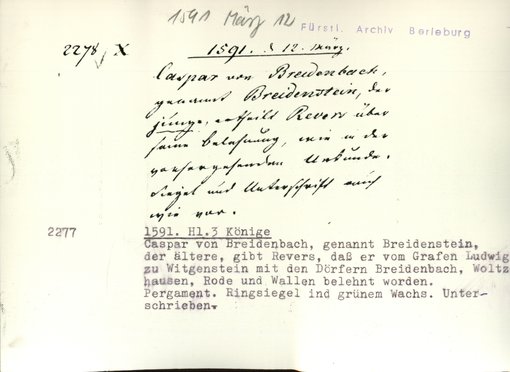 1591 März 12
Fürstl. Archiv Berleburg
2278 X
1591. d. 12. März.
Caspar von Breidenbach,
genannt Breidenstein, der
junge, ertheilt Revers über
seine Belehnung, wie in der
vorhergehenden Urkunde.
Siegel und Unterschrift auch
wie vor.
2277
1591. Hl.3 Könige
Caspar von Breidenbach, genannt Breidenstein,
der ältere, gibt Revers, daß er vom Grafen Ludwig
zu Witgenstein mit den Dörfern Breidenbach, Woltz
hausen, Rode und Wallen belehnt worden.
Pergament. Ringsiegel ind grünem Wachs. Unter-
schrieben.